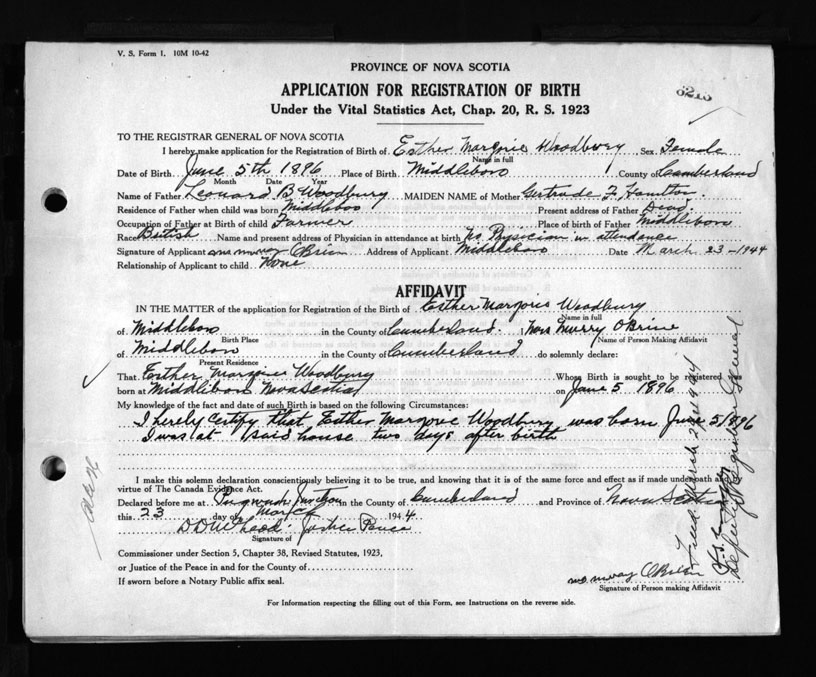 V. S. Form 1. 10M 10-42
PROVINCE OF NOVA SCOTIA
APPLICATION FOR REGISTRATION OF BIRTH
Under the Vital Statistics Act, Chap. 20, R. S. 1923
TO THE REGISTRAR GENERAL OF NOVA SCOTIA
I hereby make application for the Registration of Birth of Esther Marjorie Woodbury Sex Female
Name in full
Date of Birth June 5th 1896 Place of Birth Middleboro County of Cumberland
Month Date Year
Name of Father Leonard B Woodbury MAIDEN NAME of Mother Gertrude F. Hamilton
Residence of Father when child was born Middleboro Present address of Father Dead
Occupation of Father at Birth of child Farmer Place of birth of Father Middleboro
Race British Name and present address of Physician in attendance at birth No Physician in attendance
Signature of Applicant Murray O'Brien Address of Applicant Middleboro Date March 23-1944
Relationship of Applicant to child None
AFFIDAVIT
IN THE MATTER of the application for Registration of the Birth of Esther Marjorie Woodbury
Name in full
of Middleboro in the County of Cumberland. Mrs Murry O'Brine
Birth Place Name of Person Making Affidavit
of Middleboro in the County of Cumberland do solemnly declare:
Present Residence
That Esther Marjorie Woodbury Whose Birth is sought to be registered
born at Middleboro Nova Scotia on June 5 1896
My knowledge of the fact and date of such Birth is based on the following Circumstances:
I hereby certify that Esther Marjorie Woodbury was born June 5/1896
I was at said house two days after birth
I make this solemn declaration conscientiously believing it to be true, and knowing that it is of the same force and effect as if made under oath by
virtue of The Canada Evidence Act.
Declared before me at Pugwash Junction in the County of Cumberland and Province of Nova Scotia
this 23 day of March 1944
Justice Peace
Signature of
Commissioner under Section 5, Chapter 38, Revised Statutes, 1923,
or Justice of the Peace in and for the County of
If sworn before a Notary Public affix seal.
Murray O'Brien
Signature of Person making Affidavit
For Information respecting the filling out of this Form, see Instructions on the reverse side.
Deputy Registrar General